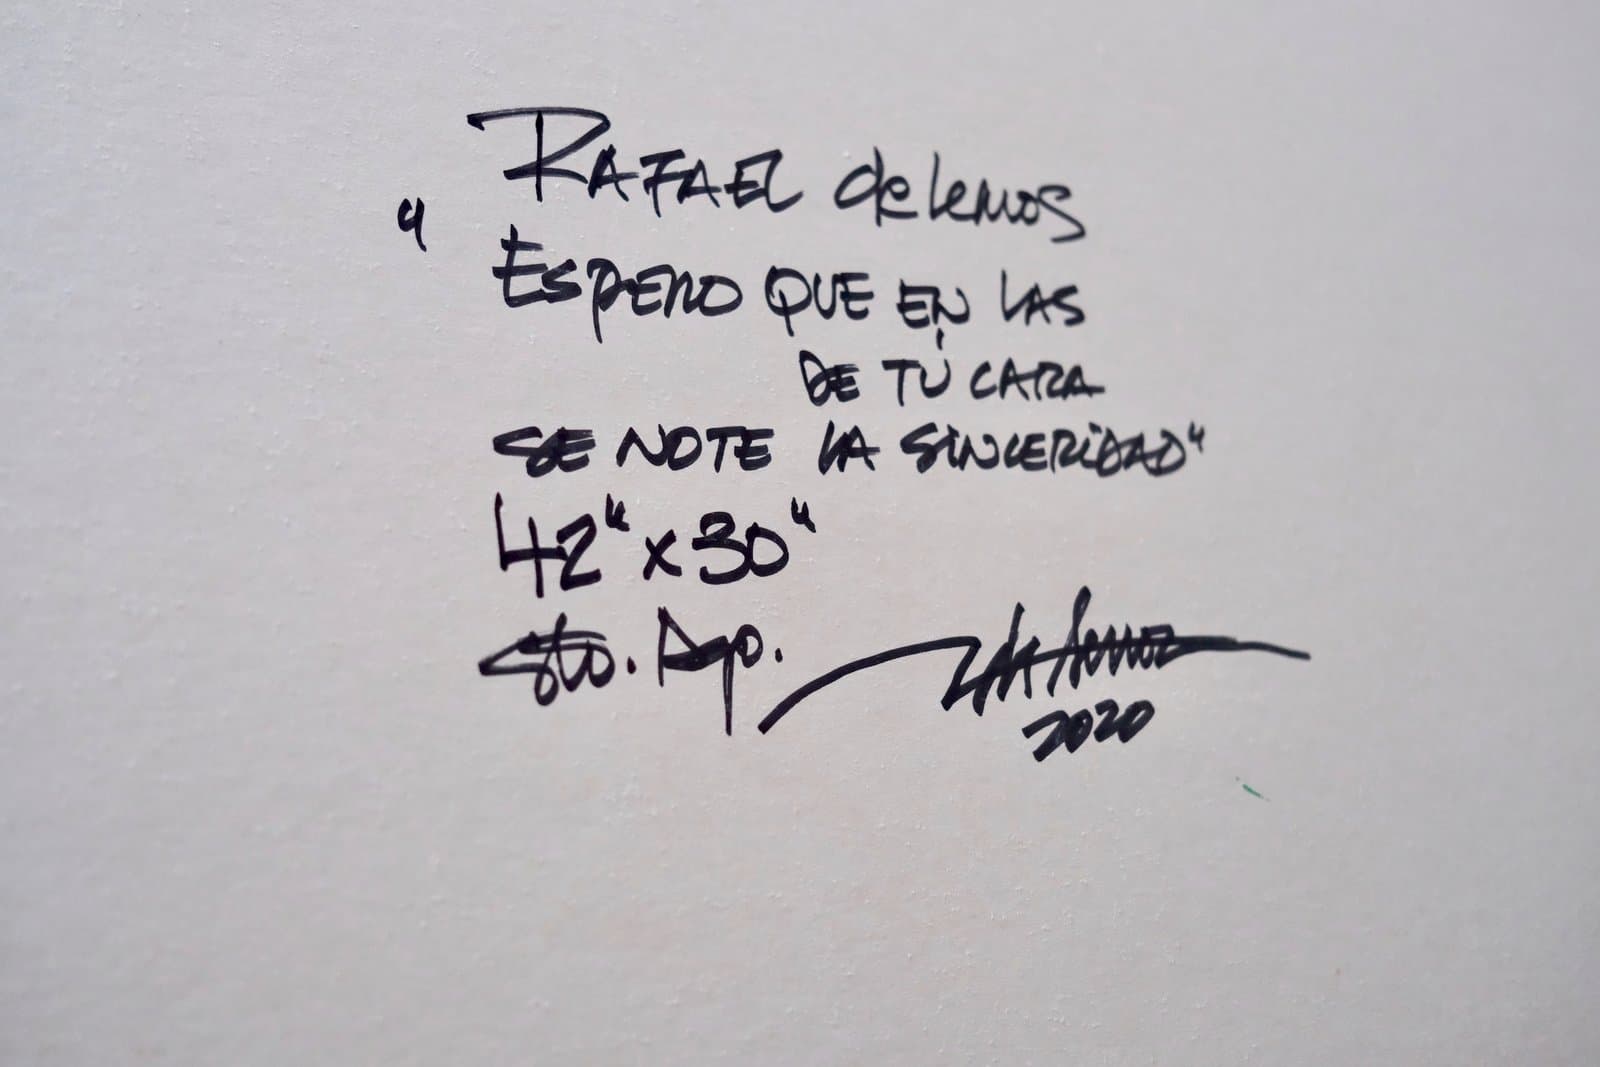 RAFAEL de lemos
"ESPERO QUE EN LAS
DE TÚ CARA
SE NOTE LA SINCERIDAD"
42" x 30"
Sto. Dgo.
2020